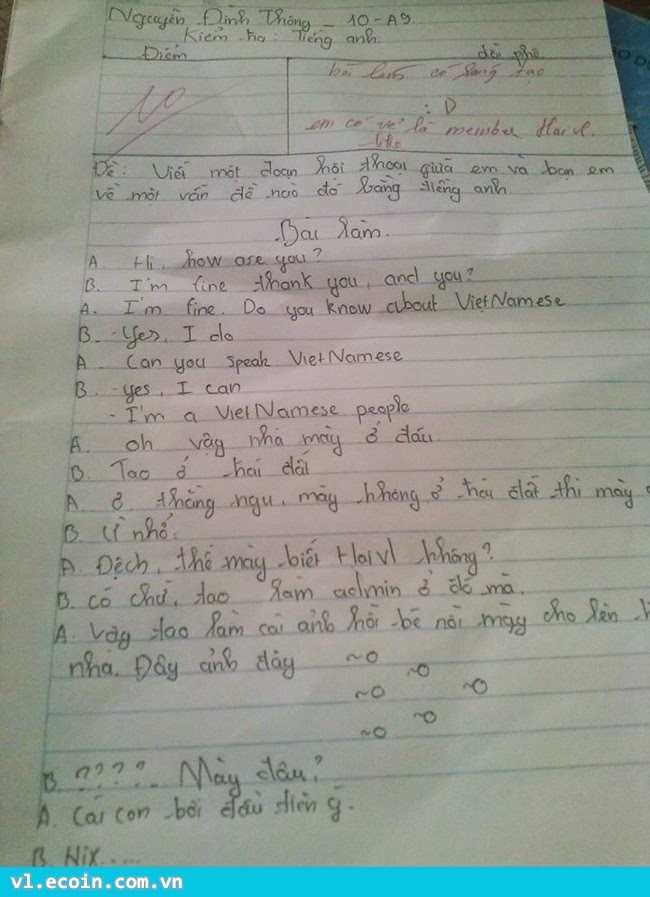 Nguyễn Đình Thông - 10-A9
Kiểm tra: Tiếng anh
Điểm
Lời phê
10
bài làm có sáng tạo
:D
em có vẻ là member Hai vl.
Đề: Viết một đoạn hôi thoại giữa em và bạn em
về một vấn đề nào đó bằng tiếng anh.
Bài làm.
A Hi, how are you?
B. I'm fine thank you, and you?
A. I'm fine. Do you know about VietNamese
B. -Yes, I do
A. Can you speak VietNamese
B. -yes, I can
- I'm a VietNamese people
A. oh vậy nhà mày ở đâu
B. Tao ở trái đất
A. ở thằng ngu, mày không ở trái đất thì mày
B. Ừ nhỉ.
A. Đệch, thế mày biết Haivl không?
B. có chứ, tao làm admin ở đó mà.
A. Vậy tao làm cái ảnh hồi bé nòi mày cho lên
nha. Đây ảnh đây ~o ~o
~o ~o
~o ~o
B. ????.. Mày đâu?
A. Cái con bơi đầu tiên ý.
B. Hix.....
vl.ecoin.com.vn